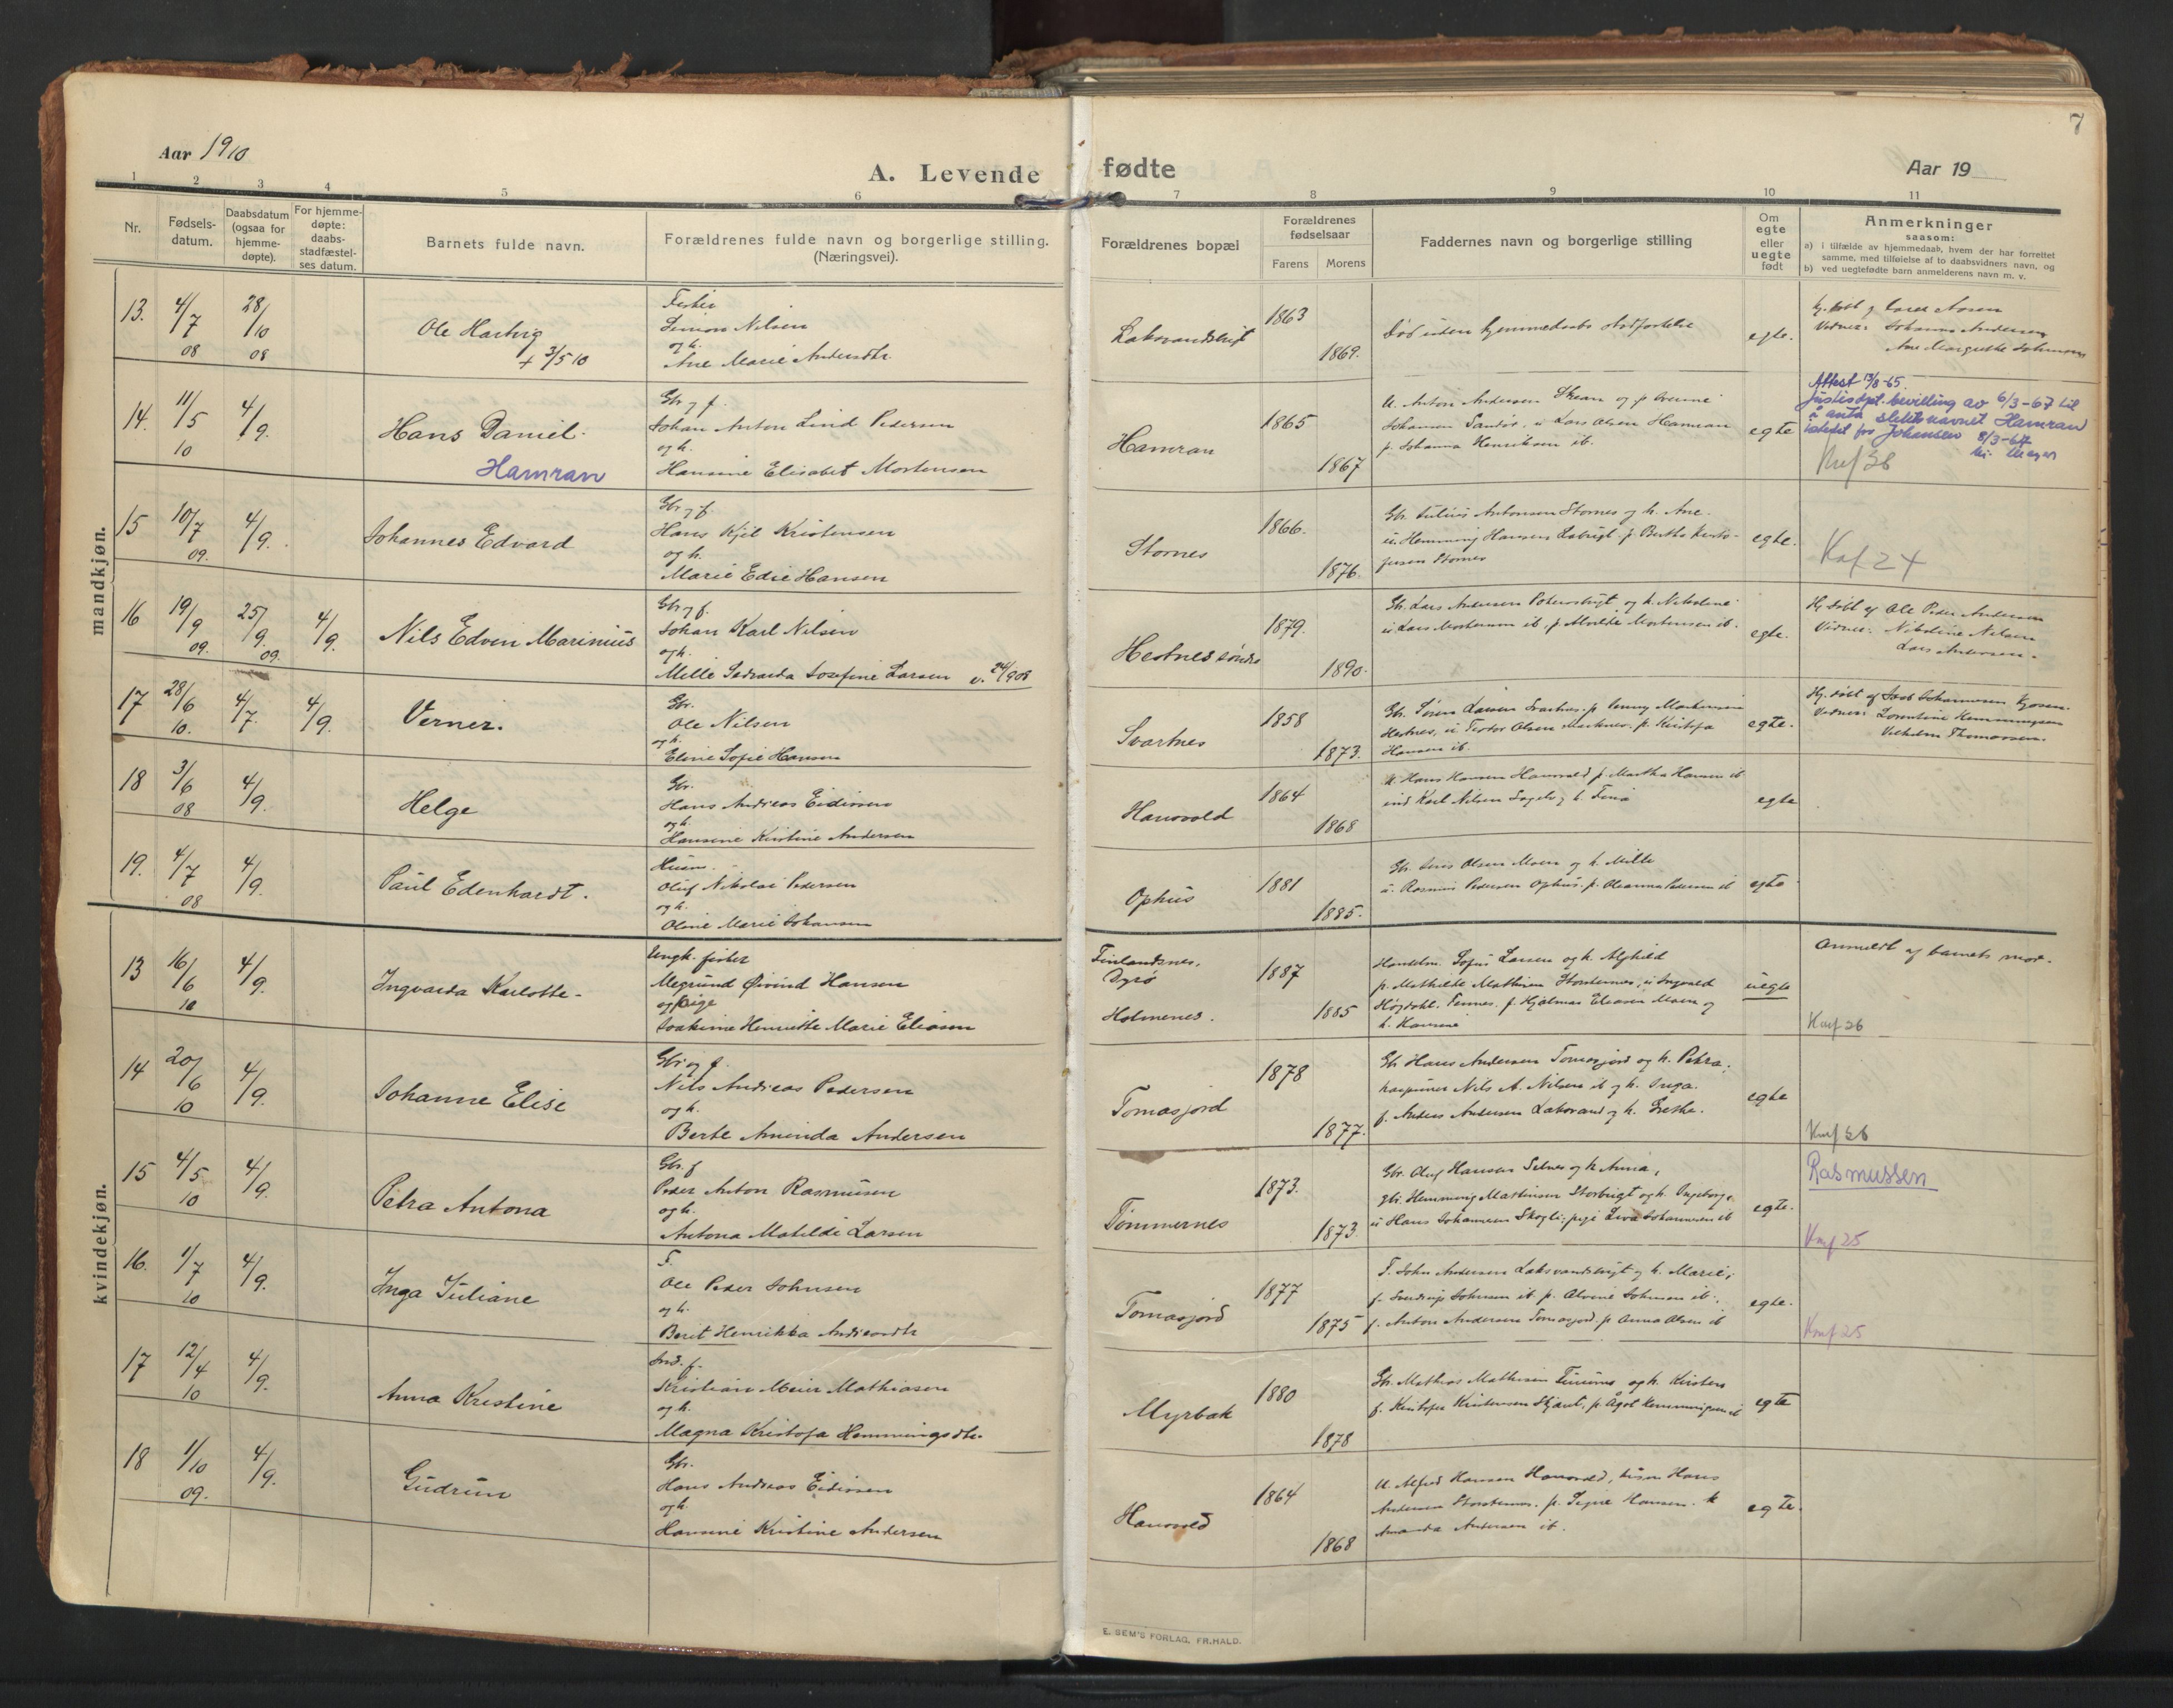 7
Aar 1910
A. Levende fødte
Aar 19
1 2 3 4 5 6 7 8 9 10 11
Nr.
Fødsels-
datum.
Daabsdatum
(ogsaa for
hjemme-
døpte).
For hjemme-
døpte:
daabs-
stadfæstel-
ses datum.
Barnets fulde navn.
Forældrenes fulde navn og borgerlige stilling.
(Næringsvei).
Forældrenes bopæl
Forældrenes
fødselsaar
Farens Morens
Faddernes navn og borgerlige stilling
Om
egte
eller
uegte
født
Anmerkninger
saasom:
a) i tilfælde av hjemmedaab, hvem der har forrettet
samme, med tilføielse af to daabsvidners navn, og
b) ved uegtefødte barn anmelderens navn m. v.
mandkjøn.
13. 4/7 08 28/10 08
Ole Hartvig
+ 3/5 10
Fisker
Simon Nilsen
og h.
Ane Marie Andersdtr
Laksvandsbugt
1863
1869.
Død uden hjemmedaabs stadfæstelse
egte.
Vidner: Johannes Andersen
Ane Margrethe Johnsen
14. 11/5 10 4/9.
Hans Daniel.
Hamran
Gbr og f.
Johan Anton Lind Pedersen
og h.
Hansine Elisabet Mortensen
Hamran
1865
1867
U. Anton Andersen
Johansen u. Lars Olsen Hamran
p. Johanna Henriksen ib.
egte
Attest 13/8-65.
Justisdpt. bevilling av 6/3-67 til
å anta slektsnavnet Hamran
istedet for Johansen 8/3-67
Knf 36
15 10/7 09. 4/9.
Johannes Edvard
Gbr og f.
Hans Kjil Kristensen
og h.
Marie Edie Hansen
Stornes
1866.
1876.
Gbr. Julius Antonsen Stornes og h. Ane.
u. Hemming Hansen p. Bertha
Stornes
egte.
Knf 24
16 19/9 09. 25/9. 09. 4/9.
Nils Edvin Marinius
Gbr og f.
Johan Karl Nilsen
og h.
Mille Josefine Larsen v. 24/9 08
Hestnes søndre
1879.
1890.
Gbr. Lars Andersen og h. Nikoline
u. Lars Mortensen ib. p. Mortensen ib.
egte.
Hj. døbt af Ole Peder Andersen
Vidner: Nikoline Nilsen
Lars Andersen.
17 28/6 10. 4/7. 4/9.
Verner.
Gbr.
Ole Nilsen
og h.
Eline Sofie Hansen
Svartnes
1858
1873.
Gbr. Søren Larsen Svartnes. p. Jenny Martinsen
Hestnes, u. Teodor Olsen p. Kristofa
Hansen ib.
egte.
Hj. døbt af Johannesen
Vidner: Lorentine Hemmingsen
Vilhelm Thomassen.
18 3/6 08 4/9.
Helge
Gbr.
Hans Andreas Eidissen
og h.
Hansine Kristine Andersen
Hansvold
1864
1868
U. Hans Hansen Hansvold p. Martha Hansen ib
ind Karl Nilsen og h.
egte
19. 4/7 08 4/9.
Paul Edenhardt.
Husm.
Oluf Nikolai Pedersen
og h.
Oline Marie Johansen
Ophus
1881
1885.
Gbr. Jens Olsen Moen og h. Mille
u. Rasmus Pedersen Ophus. p. Oleanna Pedersen ib
egte
kvindekjøn.
13 16/6 10 4/9.
Ingvarda Karlotte
Ungk. fisker
Megrund Øivind Hansen
og pige
Joakime Henriette Marie Eliasen
Finlandsnes,
Dyrø
Holmenes.
1887
1885
Handelsm. Sofus Larsen og h. Alfhild
p. Mathilde Mathisen Storsteinnes, u. Ingvald
Høgdahl. Tennes. f. Hjalmar Eliasen Moen og
h. Hansine
uegte
Anmeldt af barnets mor.
Knf 26
14 20/6 10 4/9.
Johanne Elise
Gbr og f.
Nils Andreas Pedersen
og h.
Berte Aminda Andersen
Tomasjord
1878
1877.
Gbr Hans Andersen Tomasjord og h. Petra,
Nils A. Nilsen ib og h. Inga.
f. Anders Andersen Laksvand og h. Grethe.
egte
Knf 26
15 4/5 10 4/9.
Petra Antona
Gbr. f
Peder Anton Rasmussen
og h.
Antona Matilde Larsen
Tømmernes
1873.
1873
Gbr. Oluf Hansen Selnes og h. Anna,
gbr. Hemming Martinsen Storbugt og h. Ingeborg,
u Hans Johannesen Skogli. pige Lova Johannesen ib
egte.
Rasmussen
Knf 25
16. 1/7 10 4/9.
Inga Juliane
F.
Ole Peder Johnsen
og h.
Berit Henrikka Andreasdtr
Tomasjord
1877
1875
F. John Andersen Laksvandsbugt og h. Marie,
f. Johnsen ib p. Alvine Johnsen ib.
f. Anton Andersen Tomasjord. p Anna Olsen ib
egte.
Knf 25
17 12/4 10 4/9.
Anna Kristine
Ind. f.
Kristian Meier Mathiasen
og h.
Magna Kristofa Hemmingsdtr.
Myrbak
1880
1878
Gbr. Mathias Mathisen og h. Kirsten
f. Kristofer Kristensen p. Ågot Hemmingsen ib
egte
18 1/10 09. 4/9.
Gudrun
Gbr.
Hans Andreas Eidissen
og h.
Hansine Kristine Andersen
Hansvold
1864
1868
U. Alfred Hansen Hansvold, Hans
Andersen Storsteinnes. p. Signe Hansen.
Amanda Andersen ib.
egte.
E. SEM'S FORLAG, FR.HALD.